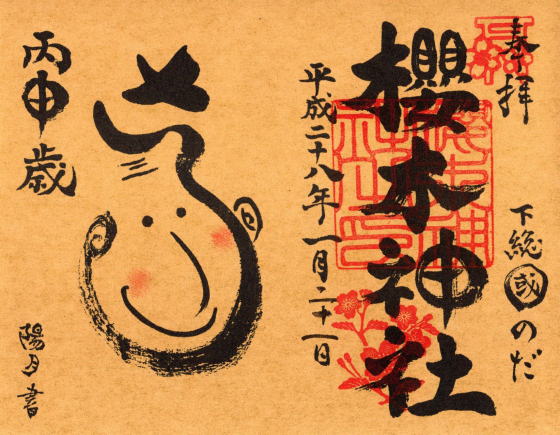 奉拝
下総國のだ
櫻木神社
平成二十八年一月二十一日
丙申歳
陽月書